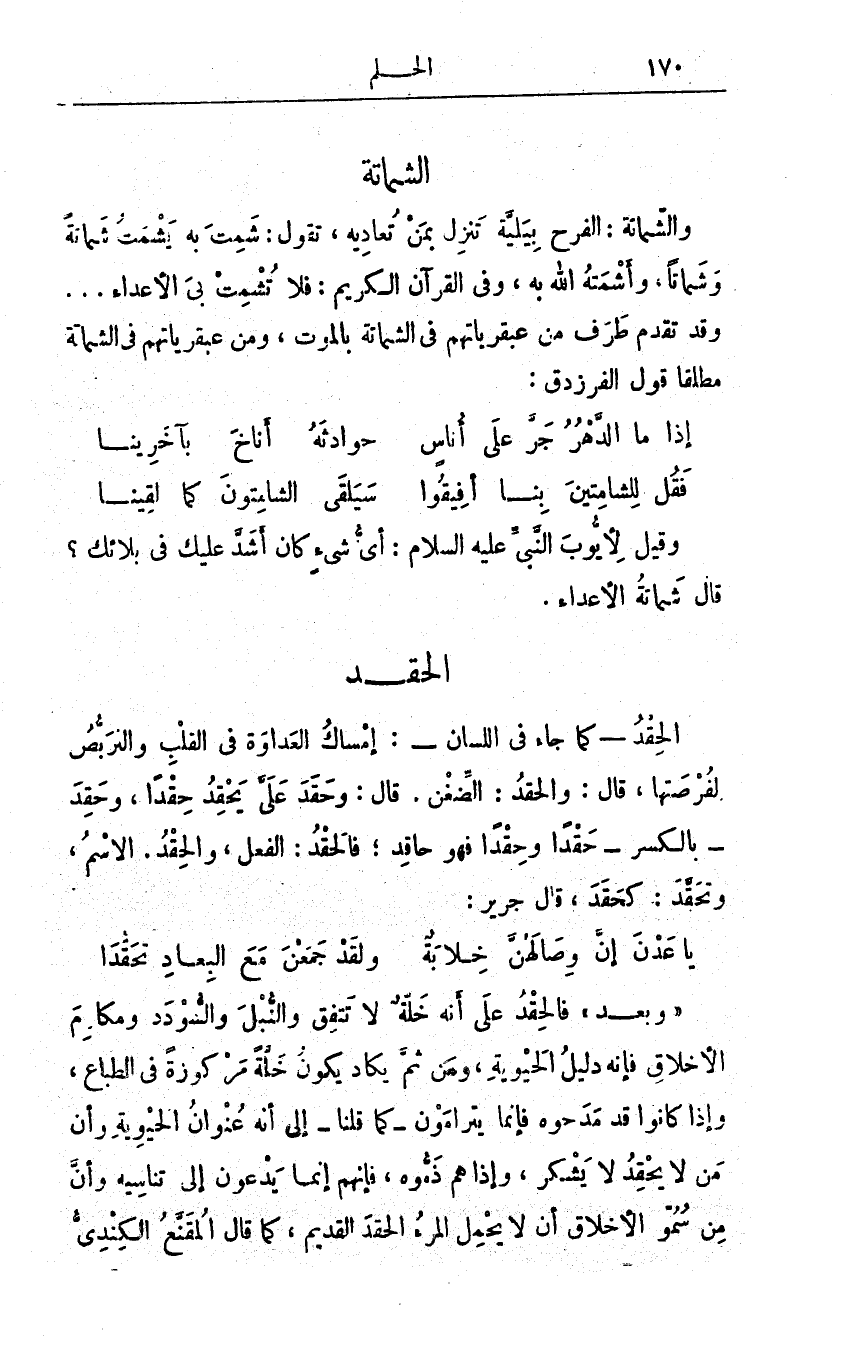 ١٧٠
الحـــلم
الشماتة
والشَّماتة : الفرح بِبَليَّة تَنزِل بمَنْ تُعادِيه ، تقول : شَمِتَ به يَشْمَتُ شَماتةً
وَشَماتاً ، وأَشْمَتهُ الله به ، وفى القرآن الـكريم : فلا تُشْمِتْ بىَ الأعداء . . .
وقد تقدم طَرَف من عبقرياتهم فى الشماتة بالموت ، ومن عبقرياتهم فى الشماتة
مطلقا قول الفرزدق :
إذا ما الدَّهْرُ جَرَّ علَى أُناسٍ حوادثَهُ أَناخَ بآخَرِينـــا
فَقُل لِلشامِتينَ بِنـــا أفِيقُوا سَيَلقَى الشامِتونَ كما لقِينـــا
وقيل لِأيُّوبَ النَّبىِّ عليه السلام : أىُّ شىءٍ كان أشَدَّ عليك فى بلائك ؟
قال شَماتةُ الأعداء .
الحقـــد
الحِقْدُ — كما جاء فى اللسان — : إمْساكُ العَداوَة فى القلْبِ والتربُّصُ
لفُرْصَتها ، قال : والحقدُ : الضِّغْن . قال : وحَقَدَ عَلَىَّ يَحْقِدُ حِقْدًا ، وحَقِدَ
– بالكسر – حَقْدًا وحِقْدًا فهو حاقِد ؛ فالحَقْدُ : الفعل ، والحِقْدُ . الاسْمُ ،
وتحَقَّدَ : كحَقَدَ ، قال جرير :
يا عَدْنَ إنَّ وِصَالَهُنَّ خِـلابَةٌ ولقَدْ جَمَعْنَ مَعَ البِعـادِ تحَقُّدَا
« وبعـــد » فالحِقْدُ علَى أنه خَلّةٌ لا تَتفِق والنُّبْلَ والسُّوْدَد ومكارِمَ
الأخلاقِ فإنه دليلُ الحَيْويةِ ، ومَن ثمَّ يكاد يكونُ خَلَّةً مَرْكوزةً فى الطباع ،
وإذا كانوا قد مَدَحوه فإنما يترامَوْن – كما قلنا – إلى أنه عُنْوانُ الحَيْويةِ وأن
مَن لا يحْقِدُ لا يَشْكر ، وإذا هم ذَمُّوه ، فإنهم إنمـا يَدْعون إلى تناسِيه وأنَّ
مِن سُمُوّ الأخلاق أن لا يحْمِل المرءُ الحقدَ القديم ، كما قال المُقَنَّعُ الـكِنْدِىُّ